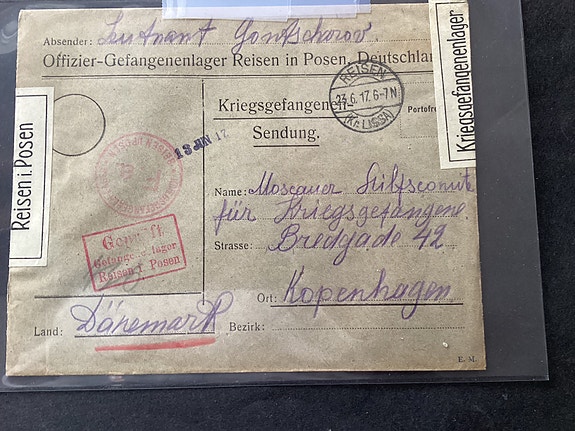 Absender: Leutnant Gontscharov.
Offizier-Gefangenenlager Reisen in Posen, Deutschlan
Kriegsgefangenen-
Sendung.
REISEN
23.6.17.6-7N
(Kr. LISSA)
Portofre
Kriegsgefangenenlager
Reisen i. Posen
13 JUN 17
Geprüft
Gefangenenlager
Reisen i. Posen
Name: Moscauer Hilfscomite
für Kriegsgefangene.
Strasse: Bredgade 42
Ort: Kopenhagen
Land: Dänemark
Bezirk:
E. M.